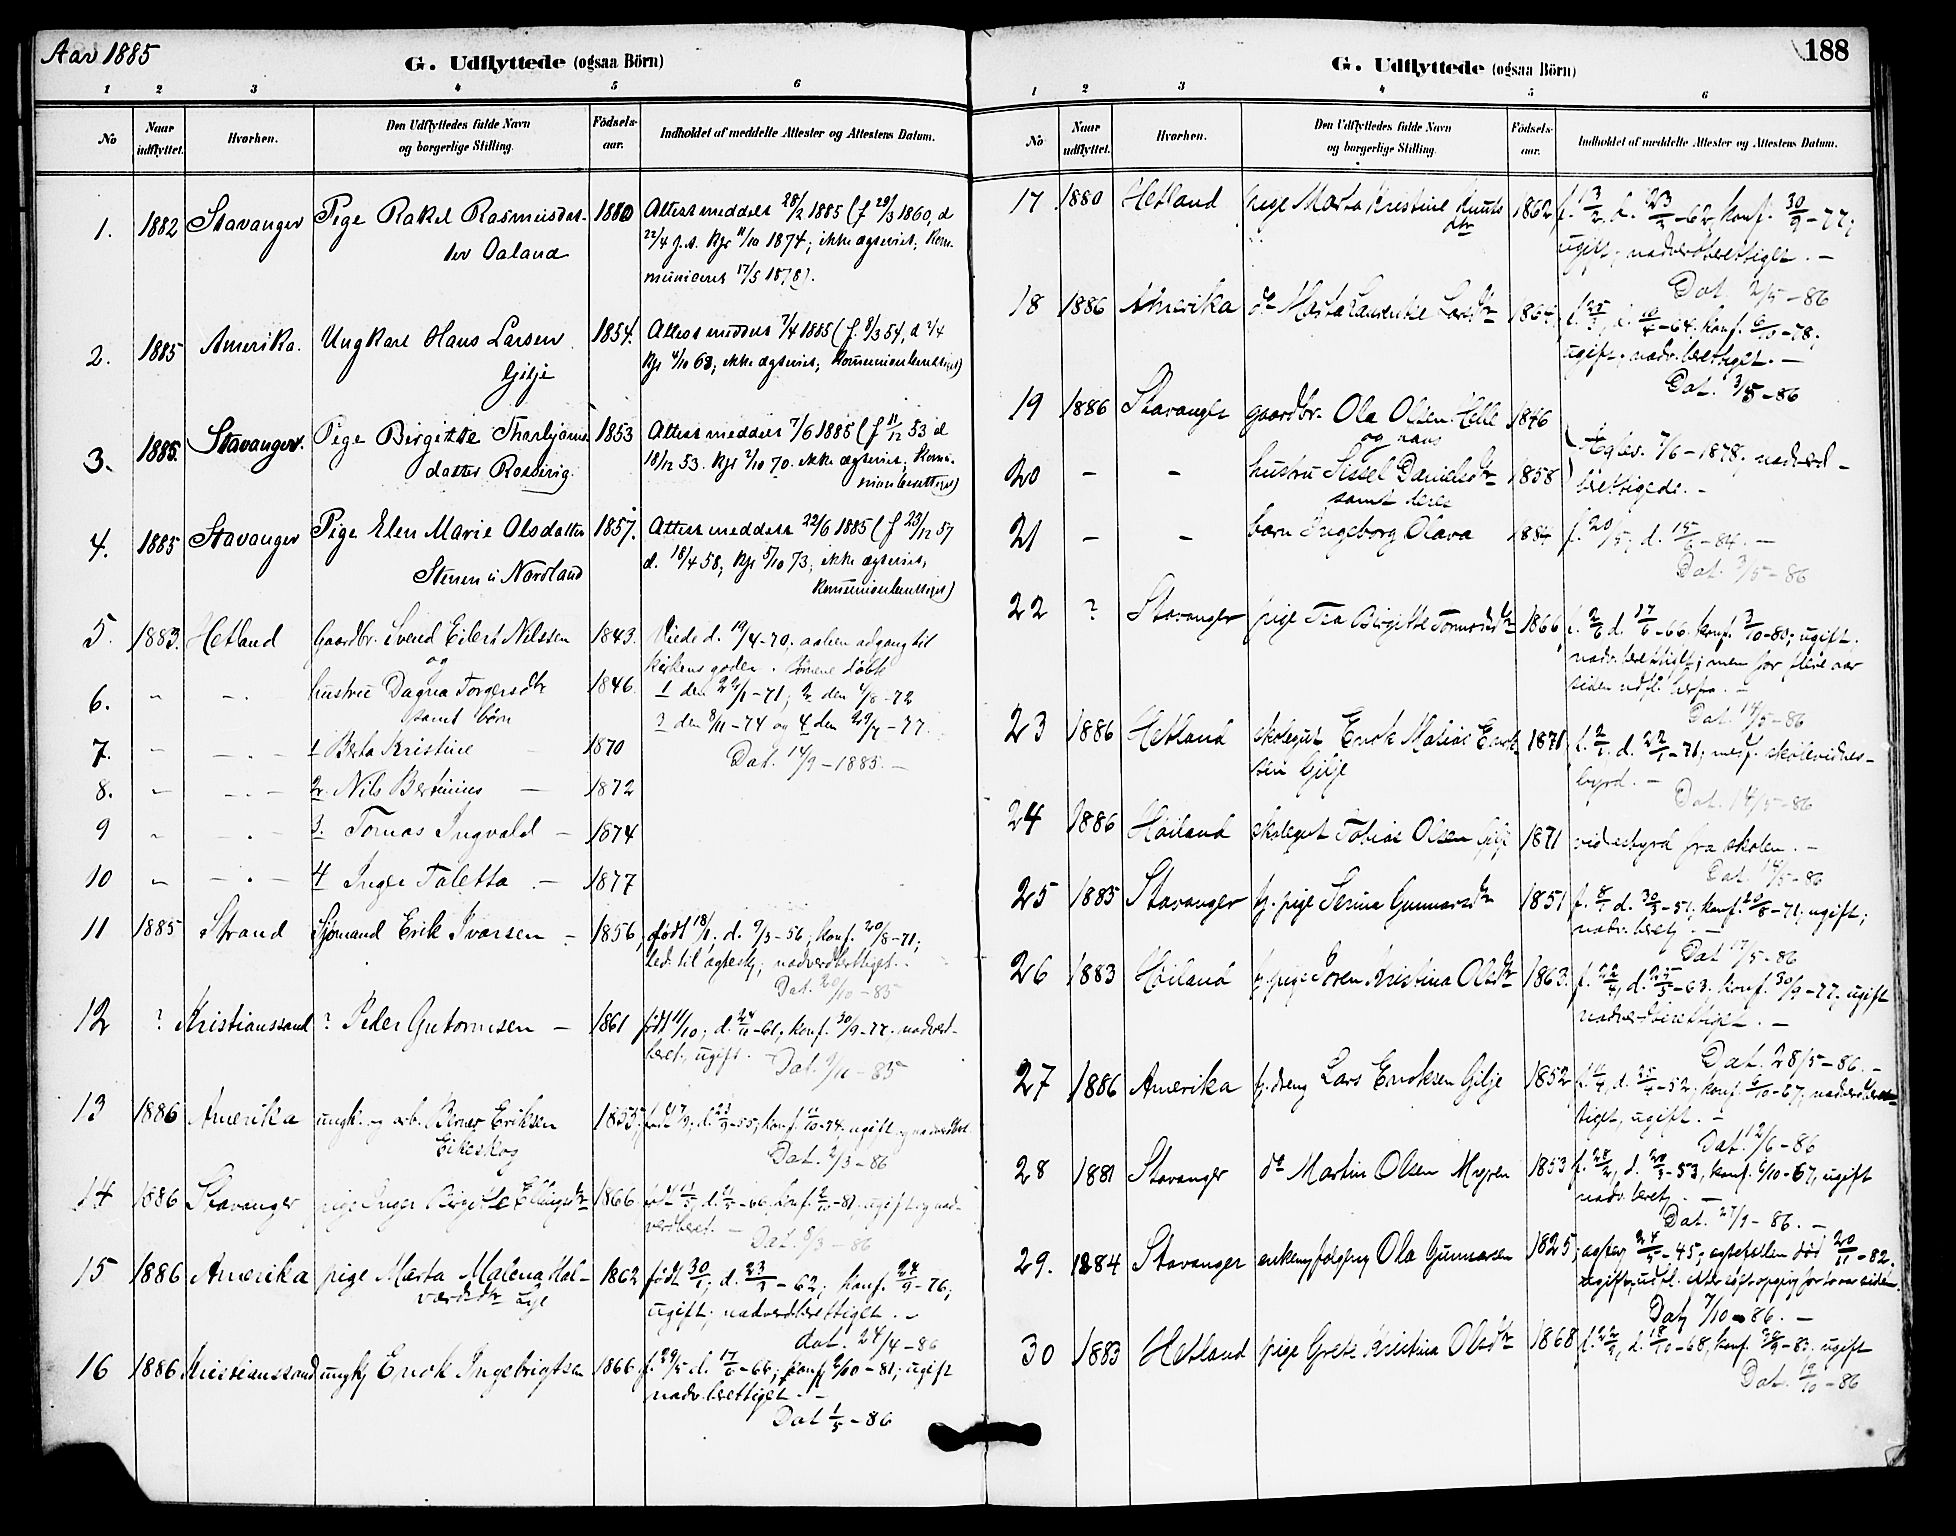 Aar 1885
G. Udflyttede (ogsaa Börn)
1 2 3 4 5 6
No
Naar udflyttet.
Hvorhen.
Den Udflyttedes fulde Navn og borgerlige Stilling.
Födsels-aar.
Indholdet af meddelte Attester og Attestens Datum.
1. 1882 Stavanger Pige Rakel Rasmusdat- 1860 Attest meddelt 28/2 1885 (f 29/3 1860, d
ter Oaland 22/4 s.A. Kfr 11/10 1874; ikke ægteviet; Kom-
municeret 17/5 1878).
2. 1885 Amerika. Ungkarl Hans Larsen 1854. Attest meddelt 7/4 1885 (f. 8/3 54, d 2/4
Gilje Kfr 4/10 68; ikke ægteviet; Kommunionberettiget)
3. 1885. Stavanger. Pige Birgitte Thorbjørns- 1853 Attest meddelt 7/6 1885 (f 11/12 53 d
datter Rossavig. 18/12 53. Kfr 2/10 70. ikke ægteviet; Kommu-
nionberettiget)
4. 1885 Stavanger Pige Elen Marie Olsdatter 1857. Attest meddelt 22/6 1885 (f 23/12 57
Stenen i Nordland d. 18/4 58; Kfr 5/10 73; ikke ægteviet;
Kommunionberettiget)
5. 1883. Hetland Gaardbr. Svend Eilert Nilssen 1843. Viede d. 19/4-70. aaben adgang til
og kirkens goder. Börnene döbte
6. " " hustru Dagna Torgersdtr 1846. 1 den 22/1-71; 2 den 4/8-72
samt börn 3 den 8/11-74 og 4 den 29/7-77.
7. " " 1 Berta Kristine 1870 Dat. 14/9-1885. -
8. " " 2. Nils Bertinius - 1872
9 " " 3. Tomas Ingvald - 1874
10 " " 4 Inger Taletta. - 1877
11 1885 Strand Sjømand Erik Ivarsen - 1856, födt 18/1; d. 9/3-56; konf. 20/8-71;
led. til ægtesk; nadverdberettiget. -
Dat. 20/10-85
12 ? Kristianssand ? Peder Gutormsen - 1861 födt 11/10; d. 24/11-61; konf. 30/9-77. nadverd-
beret., ugift. - Dat. 9/11-85
13 1886 Amerika ungk. og arb. Berner Eriksen 1855; födt 17/9; d. 23/9-55; konf. 11/10-74, ugift og nadverdber.
Eikeskog Dat. 2/3-86
14 1886 Stavanger pige Inger Birgitte Ellingsdtr 1866 ugift og nad-
verdberet. - Dat. 8/3-86
15 1886 Amerika pige Marta Malena Hal- 1862 födt 30/1; d. 23/2-62; konf. 24/9-76;
vorsdtr Lye ugift; nadverdberettiget. -
dat. 24/4-86
16 1886 Kristianssand ungk; Enok Ingebrigtsen 1866 f. 29/5 d. 17/6-66; konf 2/10-81; ugift
nadv. berettiget. -
Dat 1/5-86
188
G. Udflyttede (ogsaa Börn)
1 2 3 4 5 6
No
Naar udflyttet.
Hvorhen.
Den Udflyttedes fulde Navn og borgerlige Stilling.
Födsels-aar.
Indholdet af meddelte Attester og Attestens Datum.
17 1880 Hetland pige Marta Kristine Knuts 1862 f. 3/2, d. 23/2-62, konf. 30/9-77;
dtr ugift; nadverdberettiget. -
Dat. 2/5-86
18 1886 Amerika do Marta Laurentse Larsdtr 1864 f. 25/3, d. 10/4-64. konf. 6/10-78;
ugift. nadv. berettiget. -
Dat. 3/5-86
19 1886 Stavanger gaardbr. Ola Olsen Helle 1846
og hans Ægtev. 7/6-1878; nadverd-
20 - - hustru Sissel Danielsdtr 1858 berettigede. -
samt deres
21 - - barn Ingeborg Olava 1884 f. 20/5, d. 15/6-84. -
Dat. 3/5-86
22 ? Stavanger pige Tea Birgitte Tormodsdtr 1866 f. 2/6 d. 17/6-66. konf. 3/10-80; ugift.
nadv. berettiget; men for flere aar
siden udfl. herfra. -
Dat. 14/5-86
23 1886 Hetland skolegut Enok Matias Enok- 1871 f. 2/1. d. 22/1-71; med skolevidnes-
sen Gilje byrd. -
Dat. 14/5-86
24 1886 Höiland skolegut Tobias Olsen Gilje 1871 vidnesbyrd fra skolen. -
Dat. 14/5-86
25 1885 Stavanger tj. pige Serina Gunnarsdtr 1851 f. 8/1 d. 30/3-51; konf. 20/8-71; ugift;
nadv. beret; -
Dat 17/5-86
26 1883 Höiland tj. pige Soren Kristina Olsdtr 1863. f. 22/4, d. 25/5-63. konf. 30/9-77. ugift
nadverdberettiget. -
Dat. 28/5-86. -
27 1886 Amerika tj. dreng Lars Enoksen Gilje 1852 d. 25/4-52; konf. 6/10-67; nadverdberet-
tiget, ugift. -
Dat 12/6-86
28 1881 Stavanger do Martin Olsen Myren 1853 f. 28/2, d. 20/3-53, konf. 6/10-67, ugift
nadv. beret; -
Dat. 27/9-86. -
29. 1884 Stavanger enkem; Ola Gunnarsen 1825; 24/5-45; ægtefællen död 20/11-82.
Dat; 7/10-86. -
30 1883 Hetland pige Grete Kristina Olsdtr 1868 f. 22/9, d. 18/10-68, konf. 30/9-83. ugift
Dat. 19/10-86